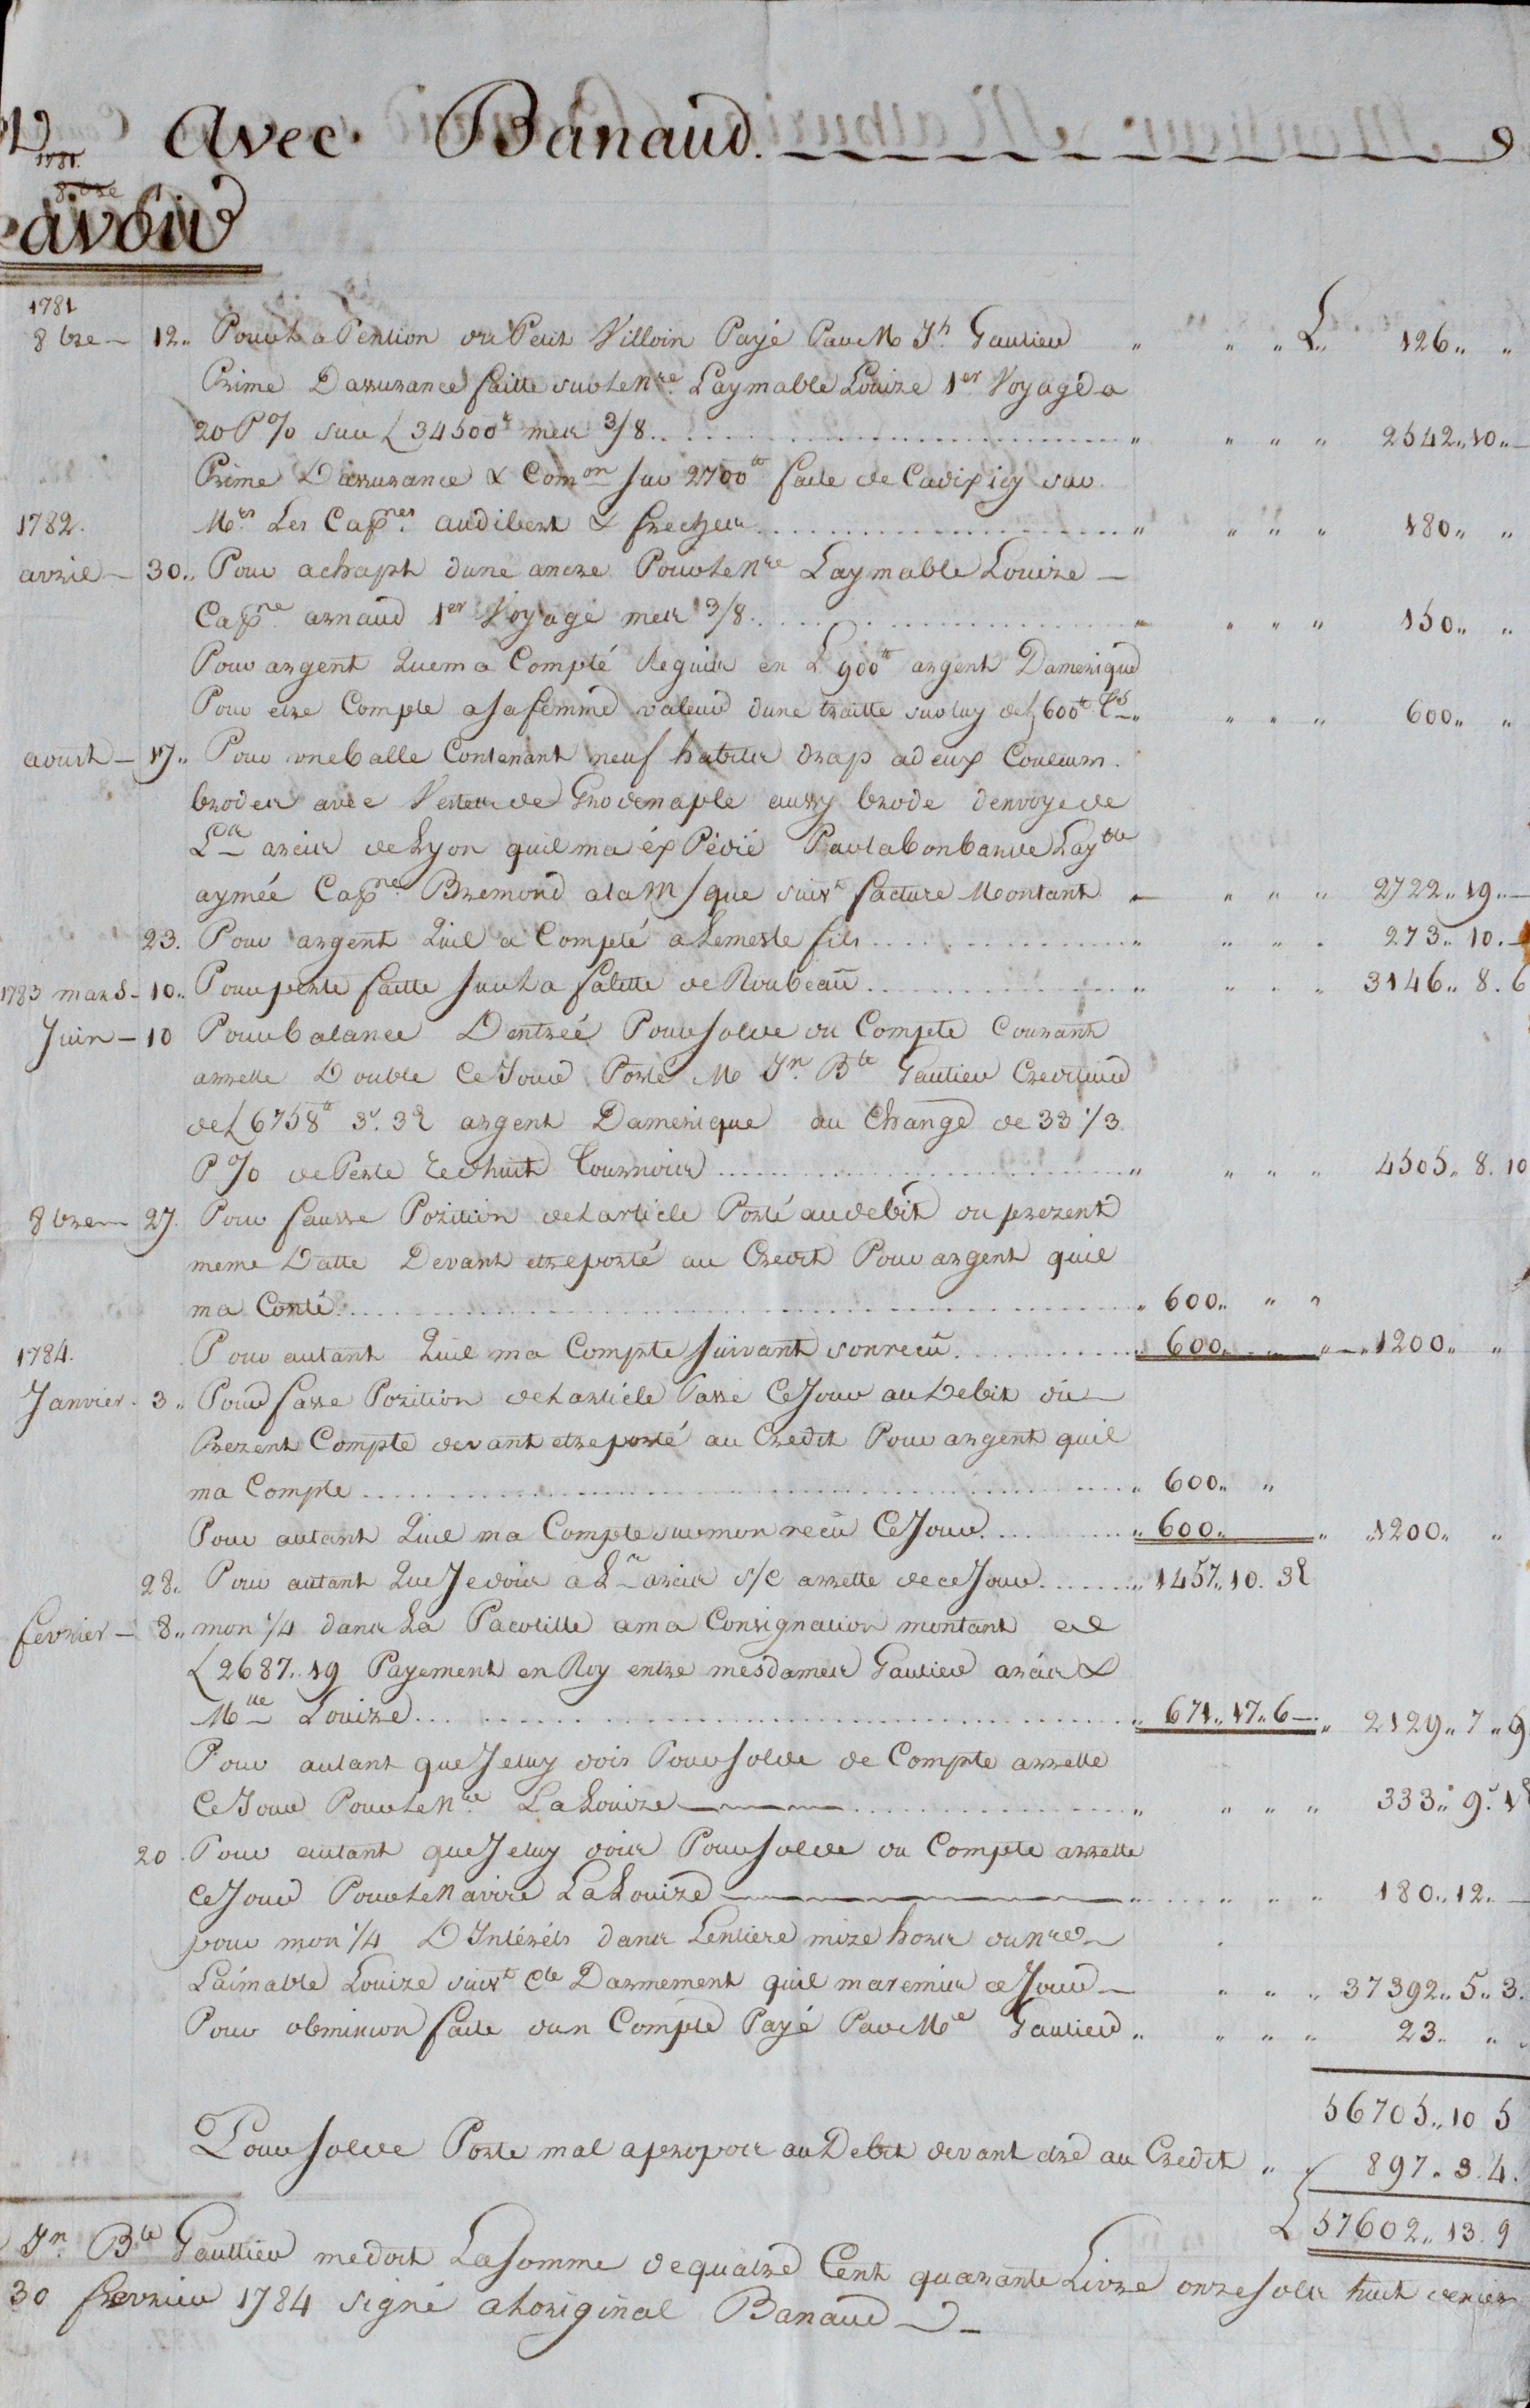 Avec Banaud.
1781.
8bre
avoir
1781
8bre 12.. Pour La Pention du Petit Villoin Payé Par M Jh Gautier " " " L.. 126.. "
Prime Dassurance faitte sur le Nre Laymable Louize 1er Voyage a
20 P % sur L 34500tt mes 3/8 .... " " " " 2542..10..
Prime Dassurance & Comon sur 2700tt faite de Cadix icy sur
1782. Mrs Les Capnes audibert & frecheur .... " " " " 180.. "
avril 30.. Pour achapt dune ancre Pour le Nre Laymable Louize
Capne arnaud 1er Voyage mes 3/8 .... " " " " 150.. "
Pour argent Quem a Compté Reguis en L 900tt argent Damerique
Pour etre Compte a sa femme valeur dune traitte sur luy de L 600tt Cs " " " " 600.. "
aoust 17.. Pour une balle Contenant neuf habits drap a deux Couleurs
brodes avec Vestes de Grodenaple aussy brode denvoye de
Lt arcis de Lyon quil ma éxpédié Par la bonbarde Lay
aymée Capne Bremond a la M/que suivt facture Montant " " " 2722..19..
23. Pour argent Quil a Compté a Lemesle fils .... " " " " 273..10.
1783 mars 10.. Pour perte faitte sur La falitte de Roubeau .... " " " " 3146..8.6
Juin 10 Pour balance Dentrée Pour solde du Compte Courant
arrette Double Ce Jour Porté M Jn Bte Gautier Crediteur
de L 6758tt 3s. 3d argent Damerique au Change de 33 1/3
P % de Perte reduit Tournois .... " " " " 4505..8.10
8bre 27. Pour fausse Pozition de Larticle Porté au debit du prezent
meme Datte Devant etre porté au Credit Pour argent quil
ma Conté .... 600.. " "
1784. Pour autant Quil ma Compte suivant son recu .... 600.. " " 1200.. "
Janvier 3.. Pour fasse Pozition de Larticle Passé Ce Jour au Debit du
Prezent Compte devant etre porté au Credit Pour argent quil
ma Compte .... 600.. "
Pour autant Quil ma Compte sur mon recu Ce Jour .... 600.. " 1200.. "
28.. Pour autant Que Je dois a Lt arcis s/c arrette de ce Jour .... 1457..10.3d
fevrier 8.. mon 1/4 dans La Pacotille a ma Consignation montant de
L 2687..19 Payement en Roy entre mesdames Gautier arcis &
Mlle Louize .... 671..17..6 2129..7..9
Pour autant que Je luy dois Pour solde de Compte arrette
Ce Jour Pour le Nre La Louize .... " " " " 333..9s.1d
20. Pour autant que Je luy dois Pour solde du Compte arrette
Ce Jour Pour le Navire La Louize .... " " " 180..12.
pour mon 1/4 DIntérêts dans Lentiere mize hors du nre
Laimable Louize suivt Cte Darmement quil ma remis ce Jour " " " 37392..5..3.
Pour obmission faite dun Compte Payé Par Mr Gautier " " " " 23.. "
56705..10 5
Pour solde Porte mal apropos au Debit devant etre au Credit " 897.3.4.
L 57602..13.9
Jn Bte Gauttier me doit La somme de quatre Cent quarante Livre onze sols huit deniers
30 fevrier 1784 signé a Loriginal Banaud